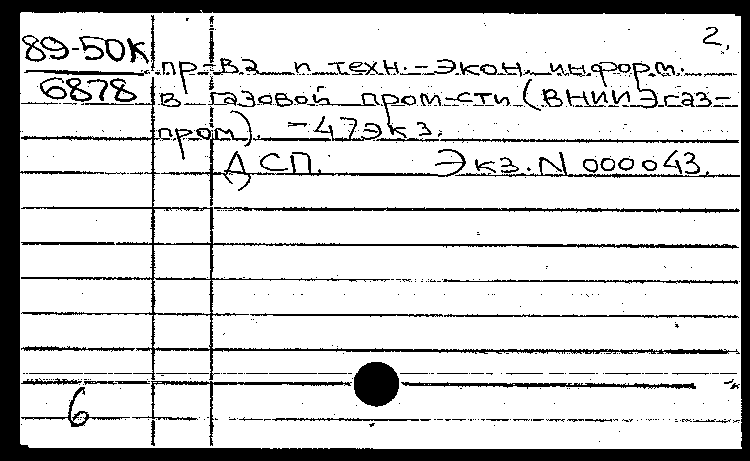 2.
89-50К
6878
пр-ва и техн.-экон. информ.
в газовой пром-сти (ВНИИЭгаз-
пром). -47экз.
ДСП. Экз. N 000043.
6